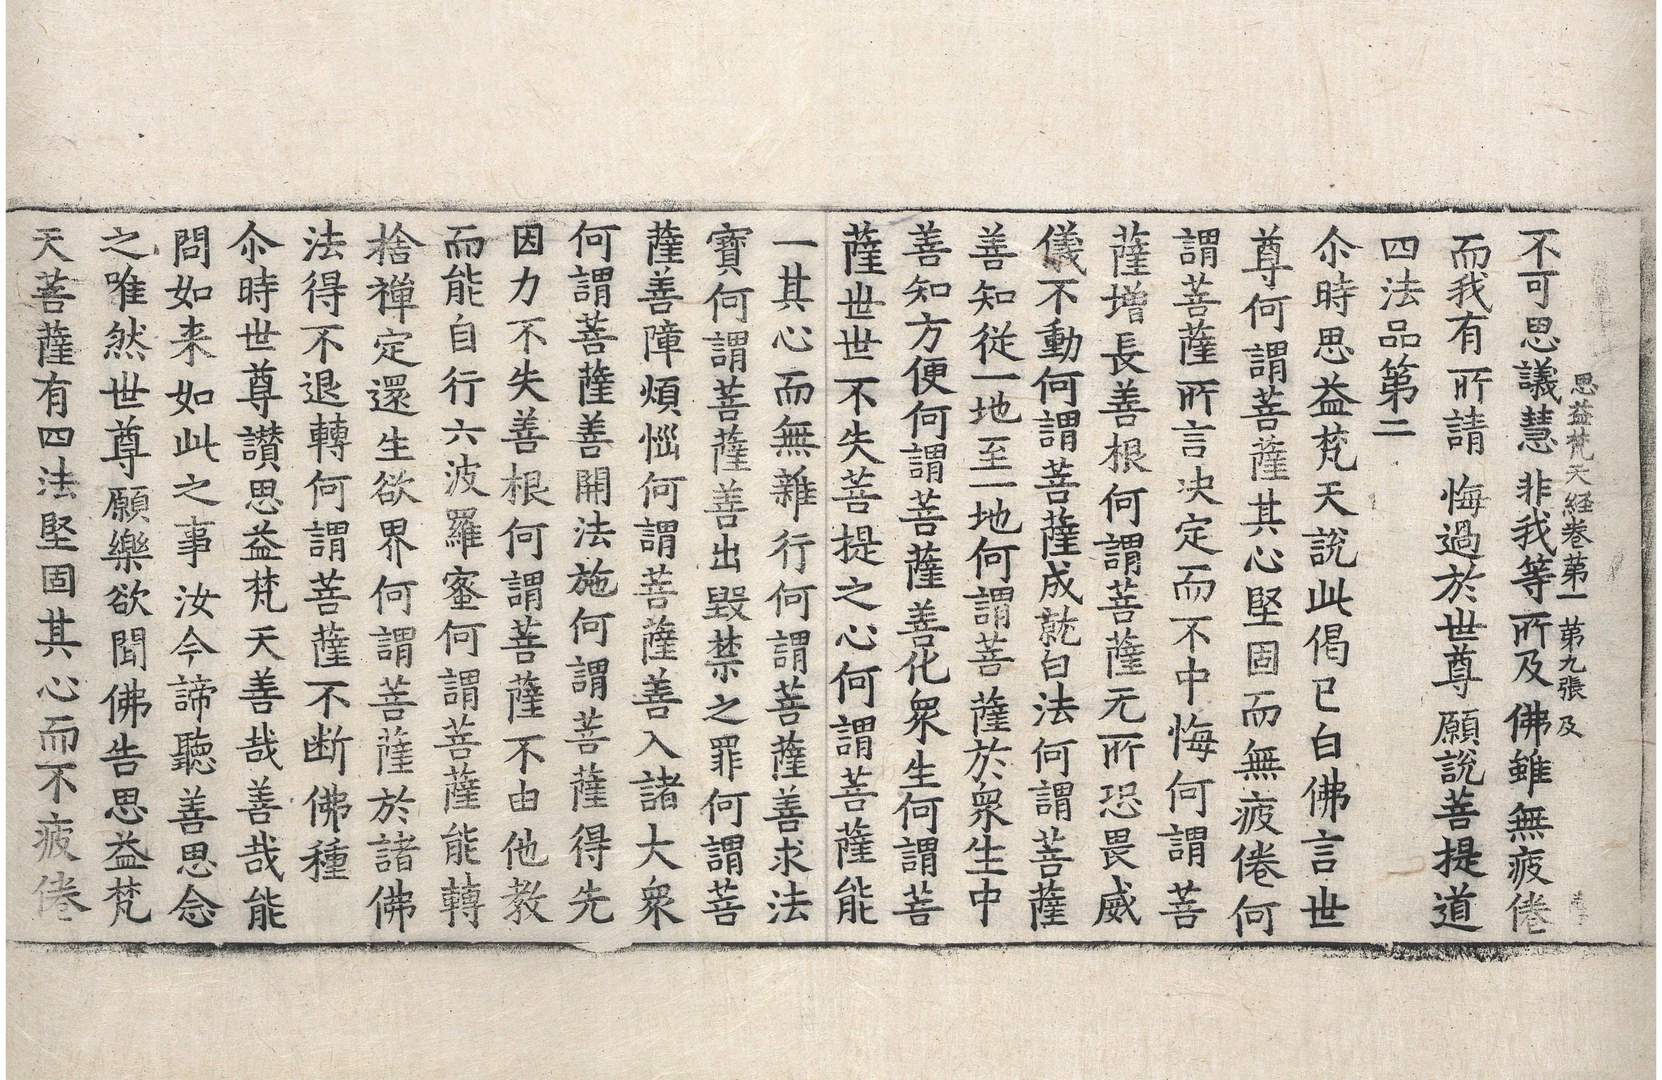 思益梵天経卷第一　第九張　及
不可思議慧　非我等所及　佛雖無疲倦
而我有所請　悔過於世尊　願說菩提道
四法品第二
尒時思益梵天說此偈已白佛言世
尊何謂菩薩其心堅固而無疲倦何
謂菩薩所言决定而不中悔何謂菩
薩增長善根何謂菩薩无所恐畏威
儀不動何謂菩薩成就白法何謂菩薩
善知從一地至一地何謂菩薩於衆生中
善知方便何謂菩薩善化衆生何謂菩
薩世世不失菩提之心何謂菩薩能
一其心而無雜行何謂菩薩善求法
寶何謂菩薩善出毀禁之罪何謂菩
薩善障煩惱何謂菩薩善入諸大衆
何謂菩薩善開法施何謂菩薩得先
因力不失善根何謂菩薩不由他教
而能自行六波羅蜜何謂菩薩能轉
捨禪定還生欲界何謂菩薩於諸佛
法得不退轉何謂菩薩不断佛種
尒時世尊讃思益梵天善哉善哉能
問如来如此之事汝今諦聽善思念
之唯然世尊願樂欲聞佛告思益梵
天菩薩有四法堅固其心而不疲倦